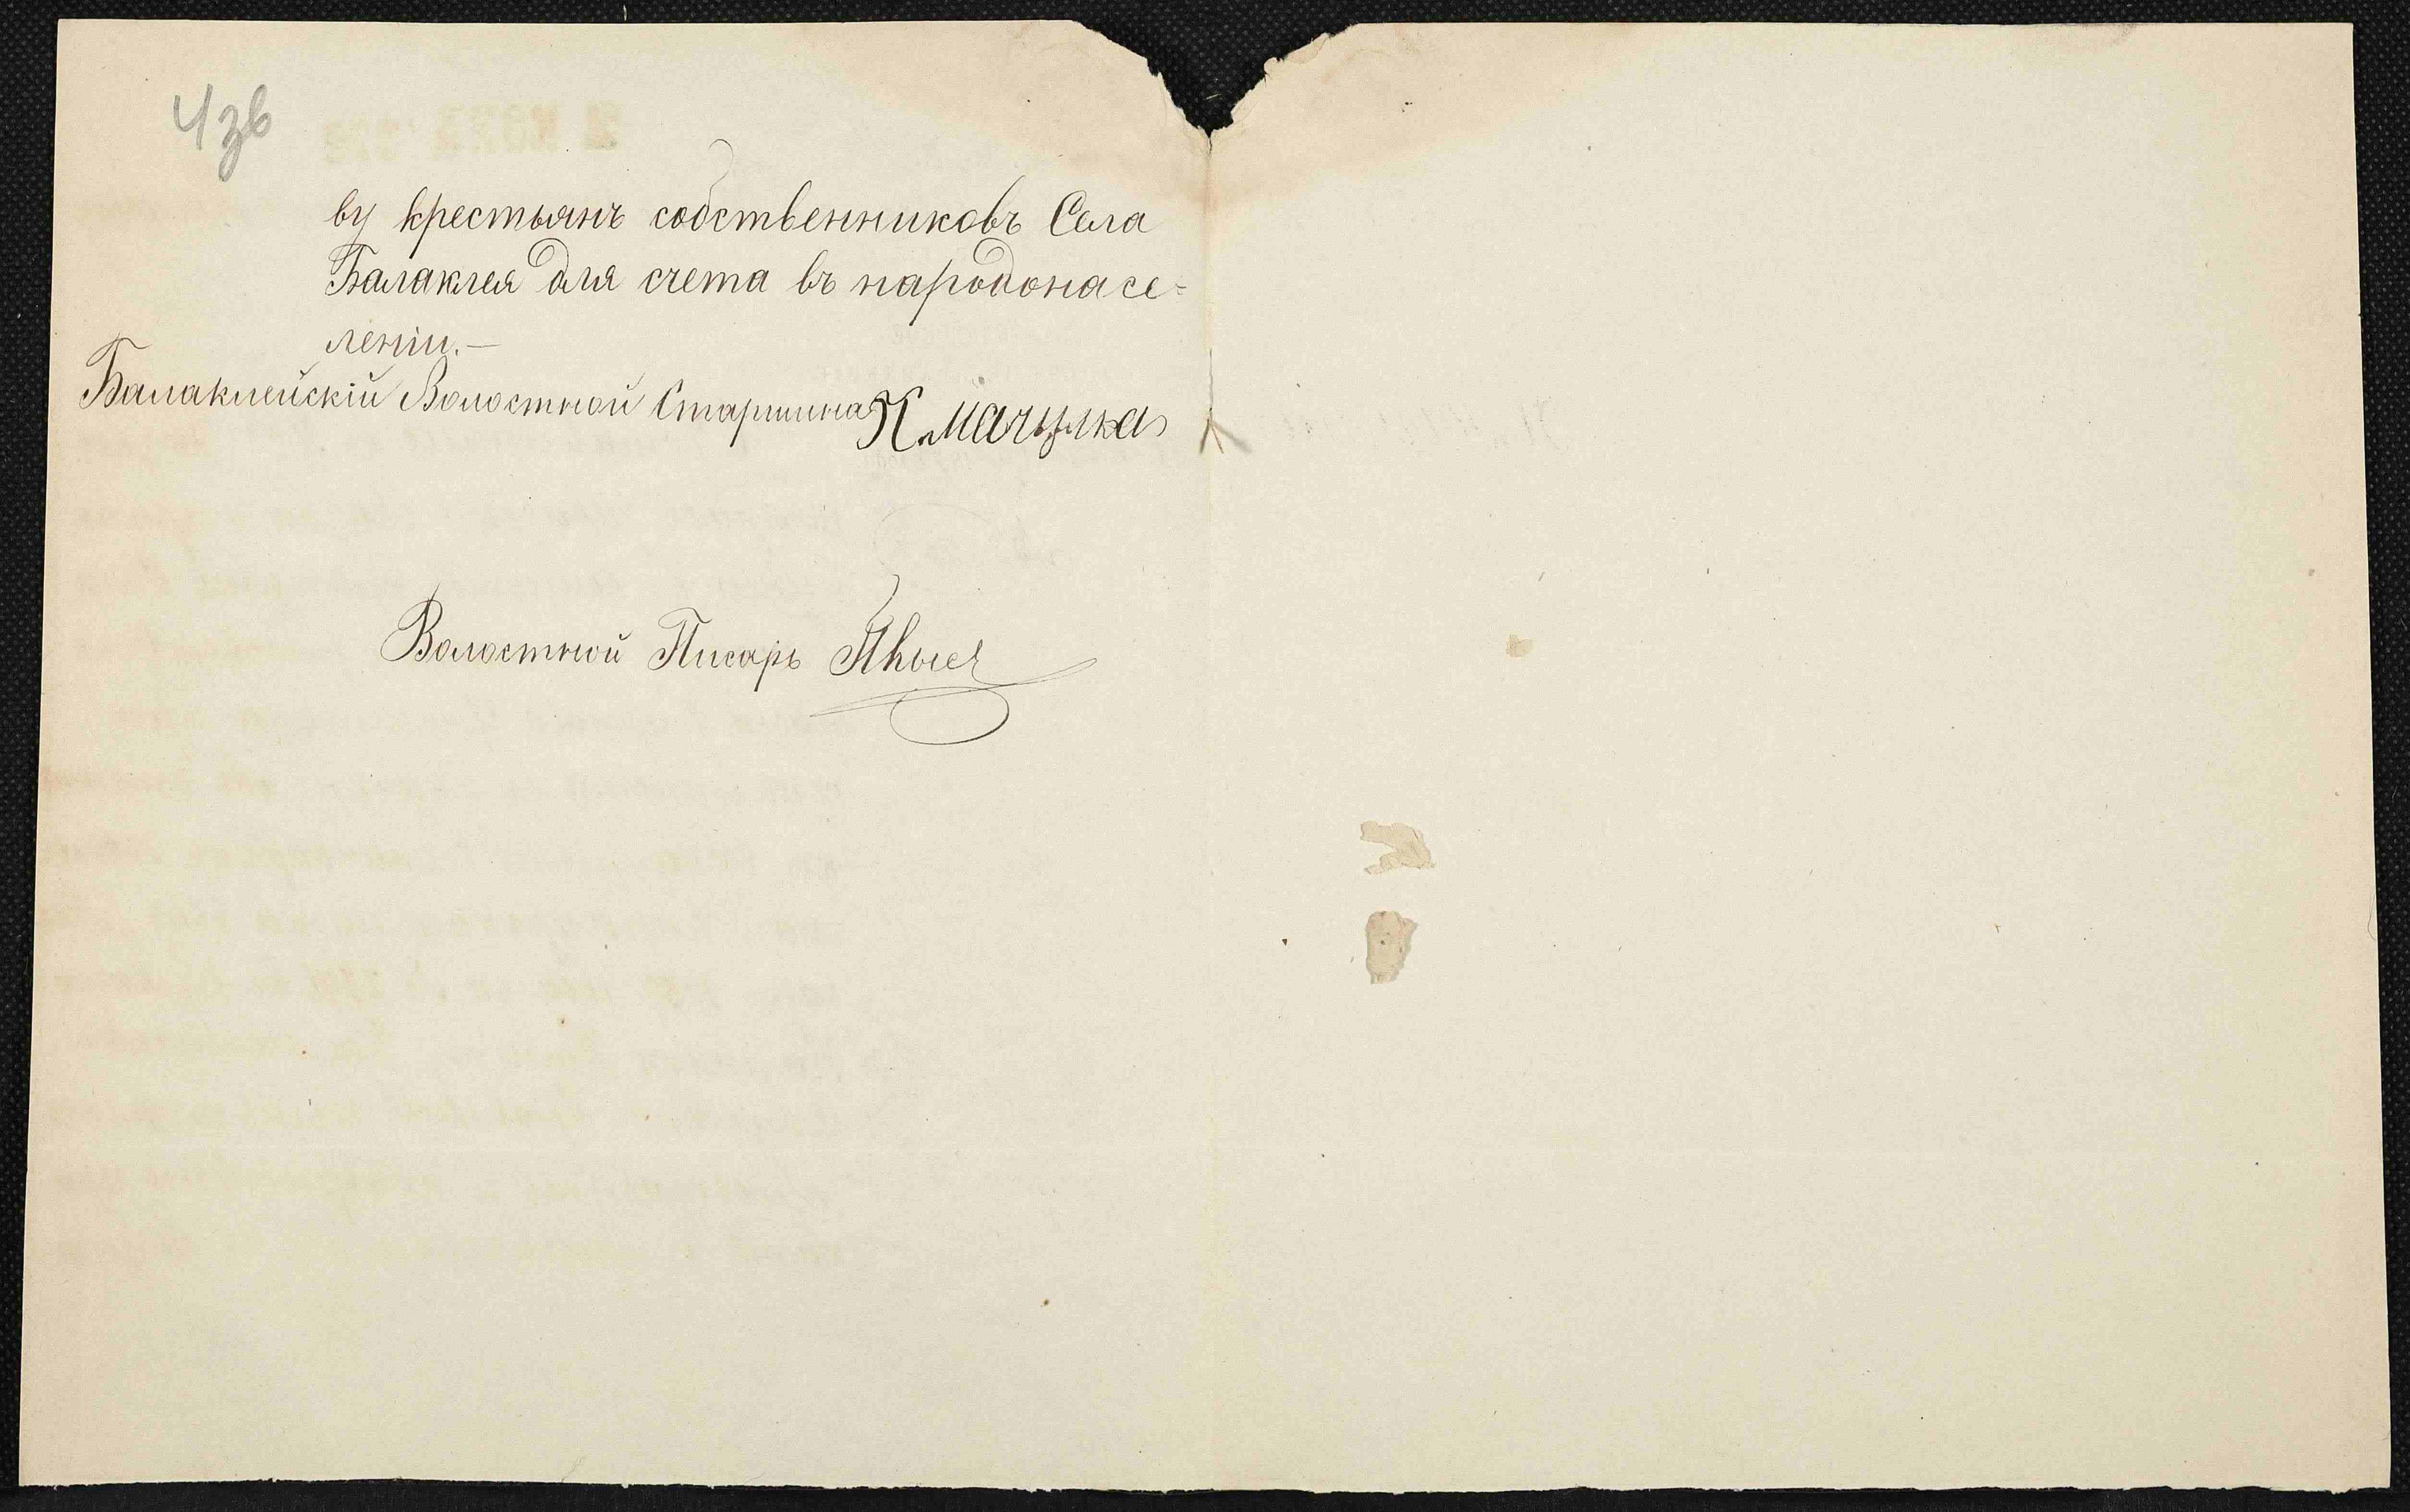 4зв
ву крестьянъ собственниковъ Села
Балаклея для счета въ народонасе=
леніи.—
Балаклейскій Волостной Старшина К. Мачулка
Волостной Писарь